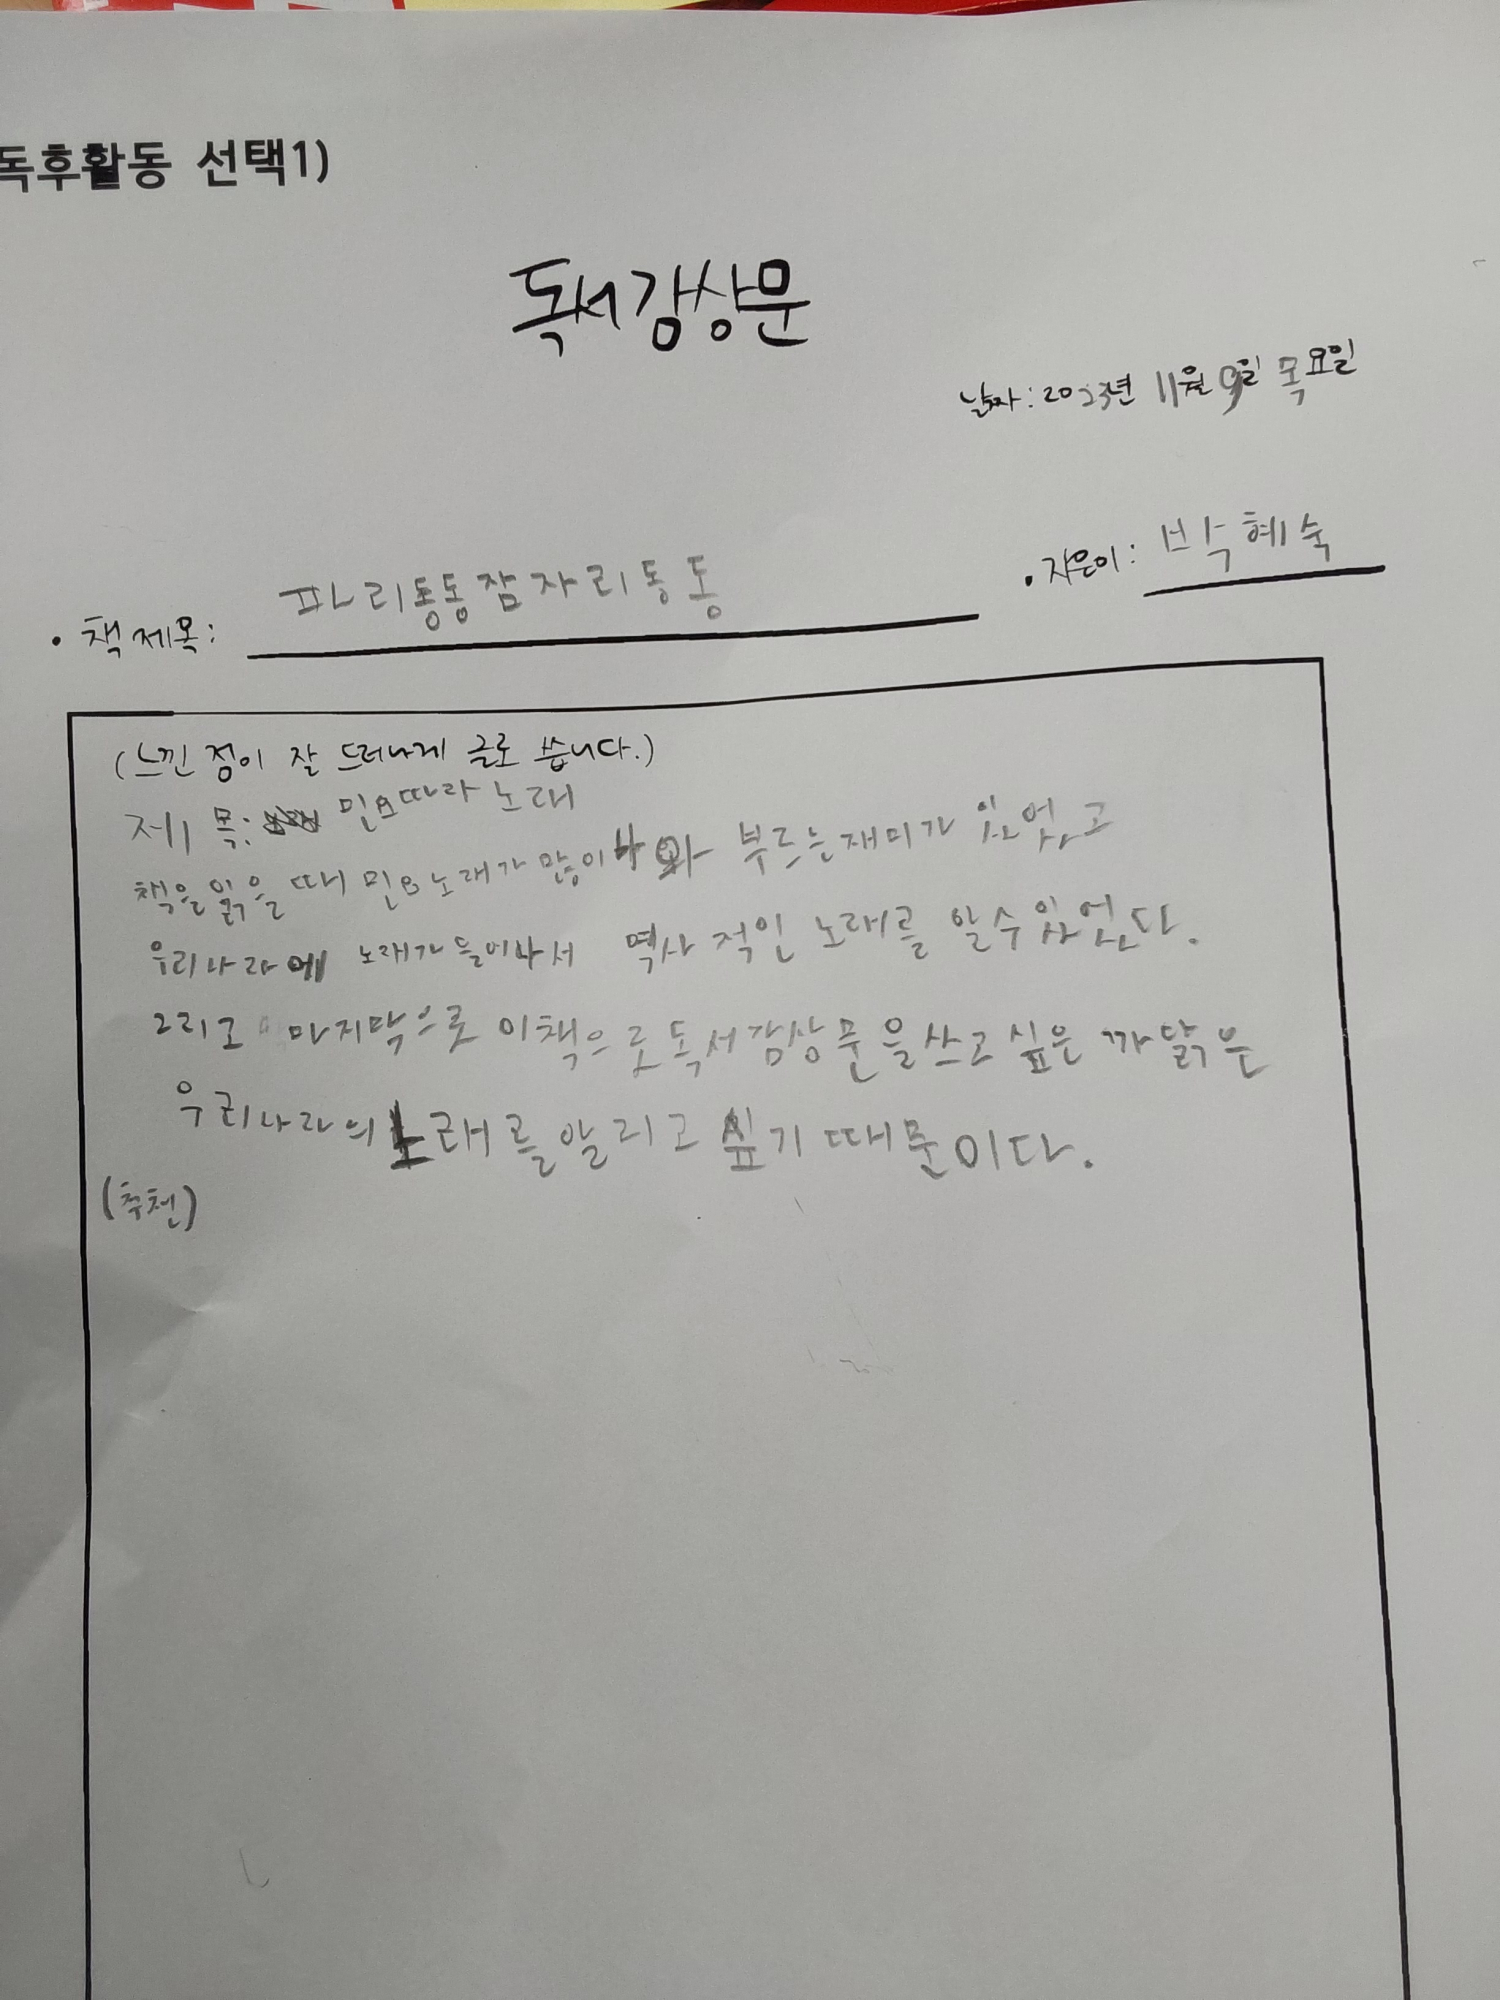 독후활동 선택1)
독서감상문
날짜: 2023년 11월 9일 목요일
• 책 제목: 파리동동잠자리동동
• 지은이: 박혜숙
(느낀 점이 잘 드러나게 글로 씁니다.)
제 목: 민요따라 노래
책을 읽을 때 민요노래가 많이 나와 부르는재미가 있었고
우리나라에 노래가 들어나서 역사 적인 노래를 알수있었다.
그리고 마지막으로 이책으로독서감상문을쓰고 싶은 까닭은
우리나라의 노래를알리고 싶기 때문이다.
(추천)